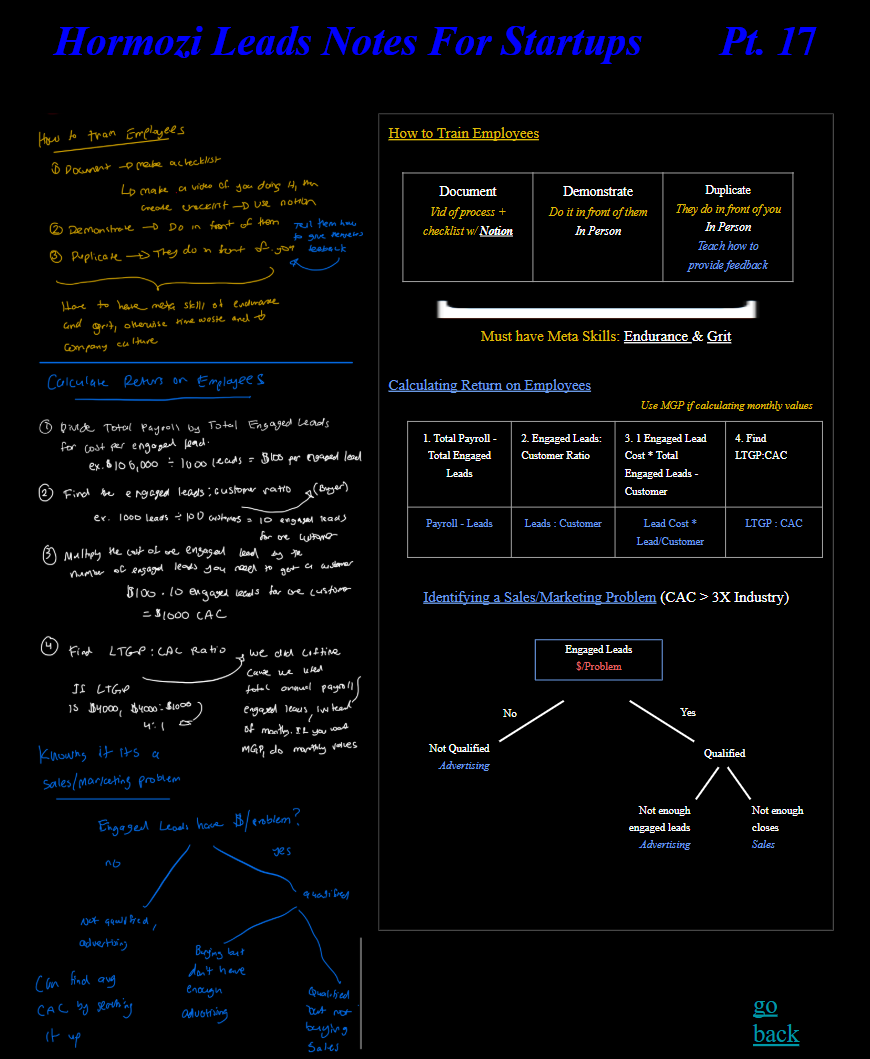 Hormozi Leads Notes For Startups Pt. 17
How to Train Employees
① Document → make a checklist
↳ make a video of you doing it, then
create checklist → use notion
② Demonstrate → Do in front of them
③ Duplicate → They do in front of you
Tell them how
to give
feedback
Have to have meta skill of endurance
and grit, otherwise time waste and ↓
company culture
Calculate Return on Employees
① Divide Total Payroll by Total Engaged Leads
for cost per engaged lead.
ex. $100,000 ÷ 1000 leads = $100 per engaged lead
② Find the engaged leads : customer ratio (Buyer)
ex. 1000 leads ÷ 100 customers = 10 engaged leads
for one customer
③ Multiply the cost of one engaged lead by the
number of engaged leads you need to get a customer
$100 · 10 engaged leads for one customer
= $1000 CAC
④ Find LTGP : CAC Ratio
If LTGP
is $4000, $4000 : $1000
4 : 1
we did lifetime
cause we used
total annual payroll/
engaged leads, instead
of monthly. If you want
MGP, do monthly values
Knowing if it's a
sales/marketing problem
Engaged Leads have $/problem?
no
yes
Not qualified,
advertising
qualified
Buying but
don't have
enough
advertising
Qualified
but not
buying
Sales
Can find avg
CAC by searching
it up
How to Train Employees
Document
Vid of process +
checklist w/ Notion
Demonstrate
Do it in front of them
In Person
Duplicate
They do in front of you
In Person
Teach how to
provide feedback
Must have Meta Skills: Endurance & Grit
Calculating Return on Employees
Use MGP if calculating monthly values
1. Total Payroll -
Total Engaged
Leads
2. Engaged Leads:
Customer Ratio
3. 1 Engaged Lead
Cost * Total
Engaged Leads -
Customer
4. Find
LTGP:CAC
Payroll - Leads
Leads : Customer
Lead Cost *
Lead/Customer
LTGP : CAC
Identifying a Sales/Marketing Problem (CAC > 3X Industry)
Engaged Leads
$/Problem
No
Yes
Not Qualified
Advertising
Qualified
Not enough
engaged leads
Advertising
Not enough
closes
Sales
go
back